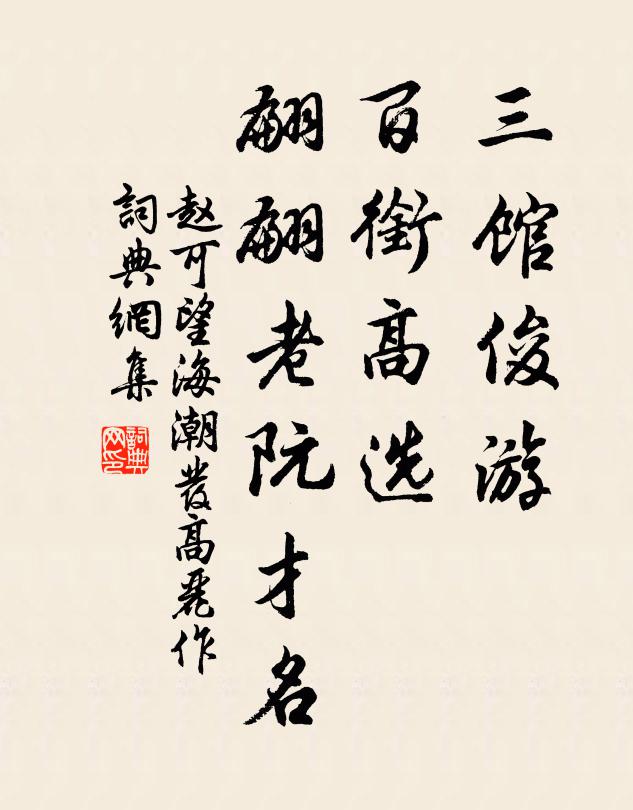 三馆俊游
百銜高选
翩翩老阮才名
赵可望海潮發高麗作
詞典網集
詞典
网印